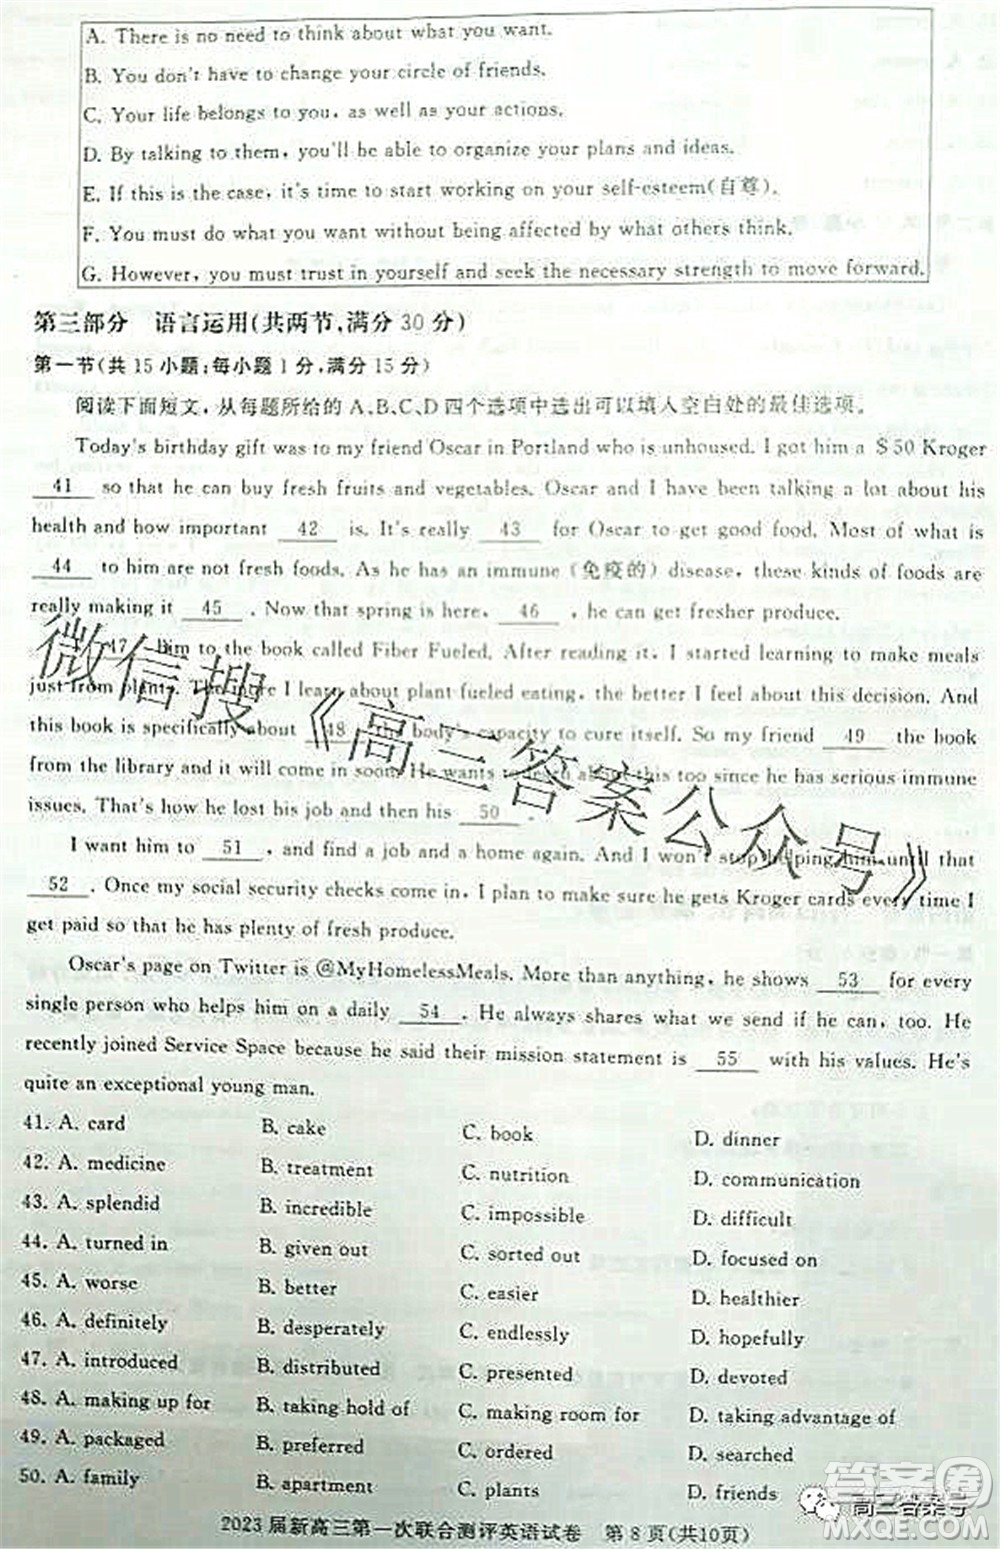 A. There is no need to think about what you want.
B. You don't have to change your circle of friends.
C. Your life belongs to you, as well as your actions.
D. By talking to them, you'll be able to organize your plans and ideas.
E. If this is the case, it's time to start working on your self-esteem(自尊).
F. You must do what you want without being affected by what others think.
G. However, you must trust in yourself and seek the necessary strength to move forward.
第三部分 语言运用(共两节,满分30分)
第一节(共15小题;每小题1分,满分15分)
阅读下面短文,从每题所给的A、B、C、D四个选项中选出可以填入空白处的最佳选项。
Today's birthday gift was to my friend Oscar in Portland who is unhoused. I got him a $50 Kroger
41 so that he can buy fresh fruits and vegetables. Oscar and I have been talking a lot about his
health and how important 42 is. It's really 43 for Oscar to get good food. Most of what is
44 to him are not fresh foods. As he has an immune (免疫的) disease, these kinds of foods are
really making it 45 . Now that spring is here, 46 , he can get fresher produce.
47 him to the book called Fiber Fueled. After reading it, I started learning to make meals
just from plants. The more I learn about plant fueled eating, the better I feel about this decision. And
this book is specifically about 48 the body's capacity to cure itself. So my friend 49 the book
from the library and it will come in soon. He wants to learn about this too since he has serious immune
issues. That's how he lost his job and then his 50 .
I want him to 51 , and find a job and a home again. And I won't stop helping him until that
52 . Once my social security checks come in, I plan to make sure he gets Kroger cards every time I
get paid so that he has plenty of fresh produce.
Oscar's page on Twitter is @MyHomelessMeals. More than anything, he shows 53 for every
single person who helps him on a daily 54 . He always shares what we send if he can, too. He
recently joined Service Space because he said their mission statement is 55 with his values. He's
quite an exceptional young man.
41. A. card B. cake C. book D. dinner
42. A. medicine B. treatment C. nutrition D. communication
43. A. splendid B. incredible C. impossible D. difficult
44. A. turned in B. given out C. sorted out D. focused on
45. A. worse B. better C. easier D. healthier
46. A. definitely B. desperately C. endlessly D. hopefully
47. A. introduced B. distributed C. presented D. devoted
48. A. making up for B. taking hold of C. making room for D. taking advantage of
49. A. packaged B. preferred C. ordered D. searched
50. A. family B. housing C. plants D. friends
2023届新高三第一次联合测评英语试卷 第8页(共10页)
微信搜《高三答案公众号》
高三答案号
答案圈
MXQE.COM